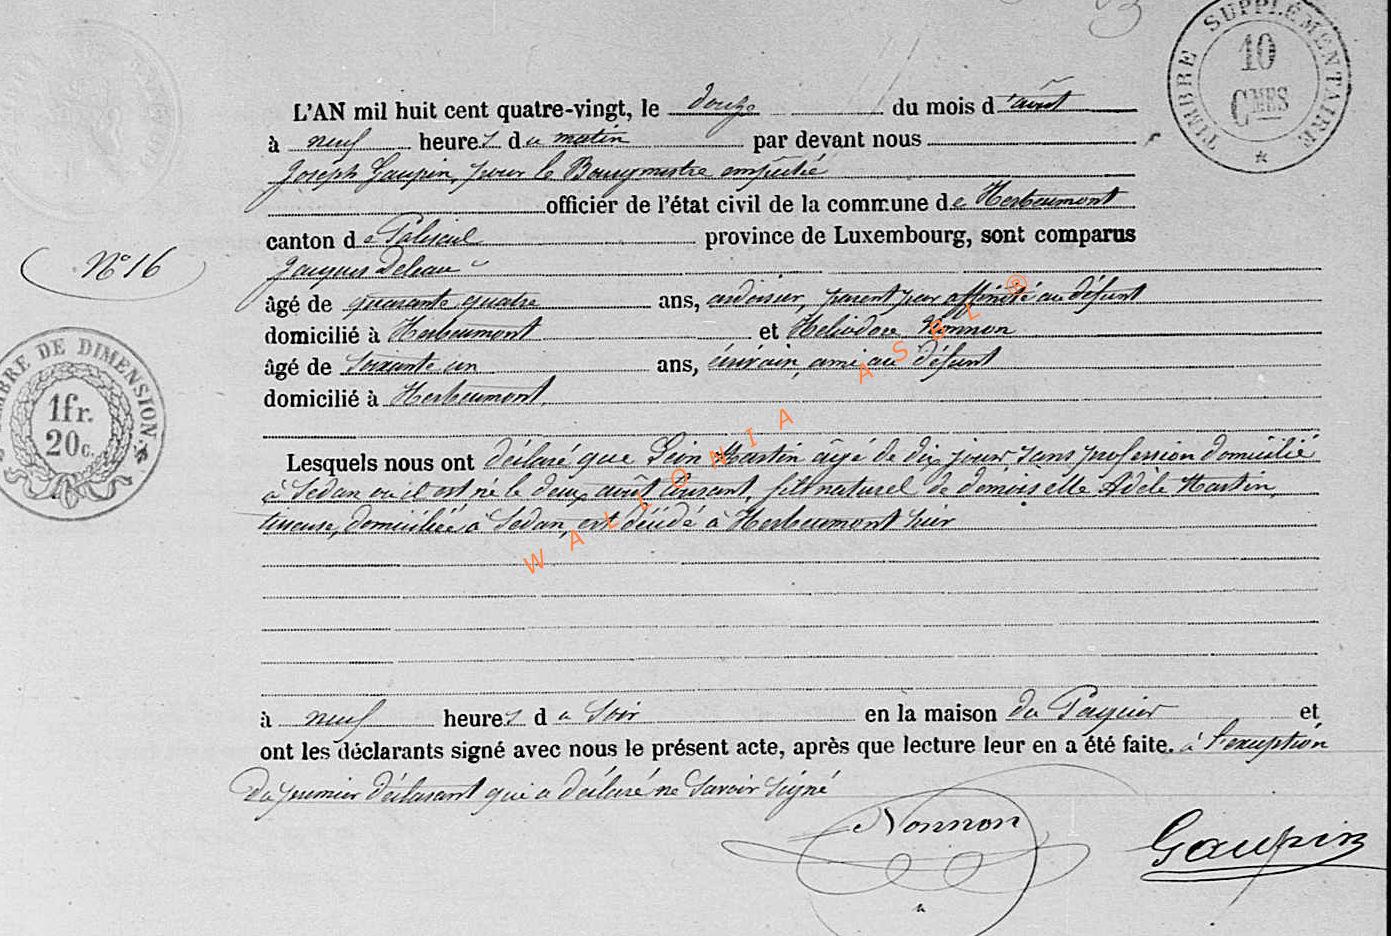 TIMBRE SUPPLÉMENTAIRE
10
CMES
L'AN mil huit cent quatre-vingt, le douze du mois d'août
à neuf heures du matin par devant nous
Joseph Gaupin, pour le Bourgmestre empêché
officier de l'état civil de la commune de Herbeumont
canton de Paliseul province de Luxembourg, sont comparus
N° 16
Jacques Deleau
âgé de quarante quatre ans, ardoisier, parent par affinité au défunt
domicilié à Herbeumont et Héliodore Nonnon
âgé de soixante un ans, écrivain, ami au défunt
domicilié à Herbeumont
TIMBRE DE DIMENSION.
1fr.
20c.
Lesquels nous ont déclaré que Léon Martin âgé de dix jours sans profession domicilié
à Sedan où il est né le deux août courant, fils naturel de demoiselle Adèle Martin,
tisseuse, domiciliée à Sedan, est décédé à Herbeumont hier
à neuf heures du soir en la maison du et
ont les déclarants signé avec nous le présent acte, après que lecture leur en a été faite. à l'exception
du premier déclarant qui a déclaré ne savoir signé
Nonnon
Gaupin
WALLONIA ASBL ®